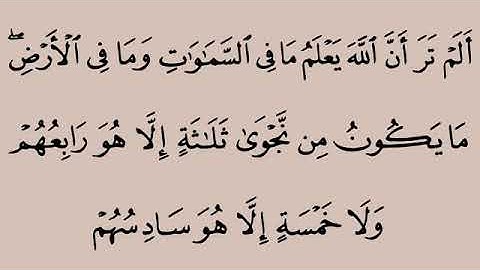 أَلَمۡ تَرَ أَنَّ ٱللَّهَ يَعۡلَمُ مَا فِي ٱلسَّمَٰوَٰتِ وَمَا فِي ٱلۡأَرۡضِۖ
مَا يَكُونُ مِن نَّجۡوَىٰ ثَلَٰثَةٍ إِلَّا هُوَ رَابِعُهُمۡ
وَلَا خَمۡسَةٍ إِلَّا هُوَ سَادِسُهُمۡ